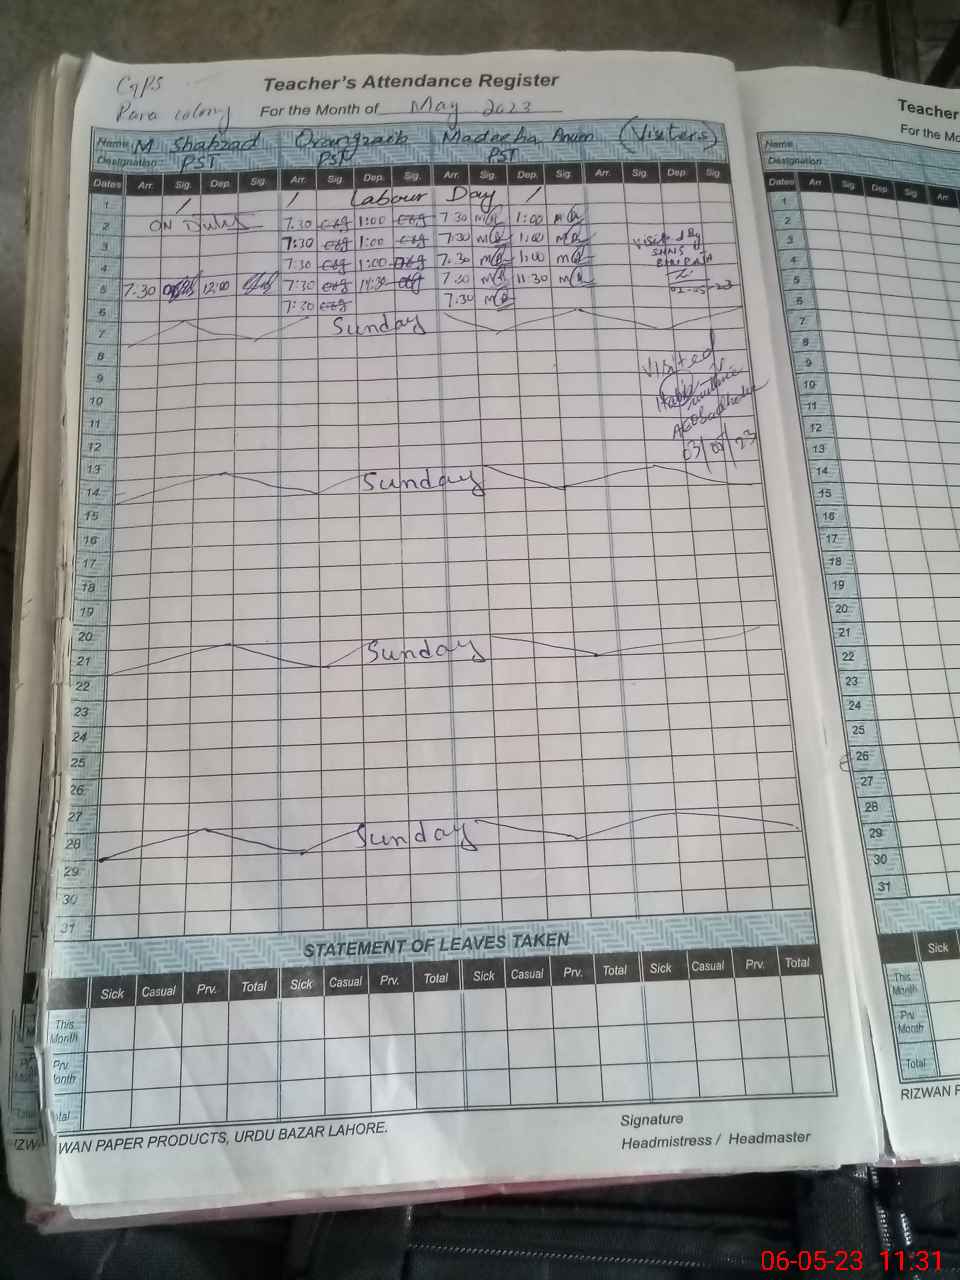 Teacher's Attendance Register
Para colony For the Month of May 2023
Name M Shahzad Orangzaib Madeeha Anum (Visiters)
Designation PST PST PST
Dates Arr. Sig. Dep. Sig. Arr. Sig. Dep. Sig. Arr. Sig. Dep. Sig. Arr. Sig. Dep. Sig.
1 Labour Day
2 ON Duty 7.30 1:00 7 30 1:00
3 7:30 1:00 7:30 1:00 Visited By
4 7.30 1:00 7.30 1:00
5 7.30 12:00 7:30 7:30 11:30 02-05-23
6 7:30 7:30
7 Sunday
8 Visited
9
10
11
12 03/05/23
13
14 Sunday
15
16
17
18
19
20
21 Sunday
22
23
24
25
26
27
28 Sunday
29
30
31
STATEMENT OF LEAVES TAKEN
Sick Casual Prv. Total Sick Casual Prv. Total Sick Casual Prv. Total Sick Casual Prv. Total
This
Month
Prv.
onth
otal
WAN PAPER PRODUCTS, URDU BAZAR LAHORE.
Signature
Headmistress / Headmaster
Teacher
For the Mo
Name
Designation
Dates Arr. Sig. Dep. Sig. Arr.
1
2
3
4
5
6
7
8
9
10
11
12
13
14
15
16
17
18
19
20
21
22
23
24
25
26
27
28
29
30
31
Sick
This
Month
Prv.
Month
Total
RIZWAN P
06-05-23 11:31